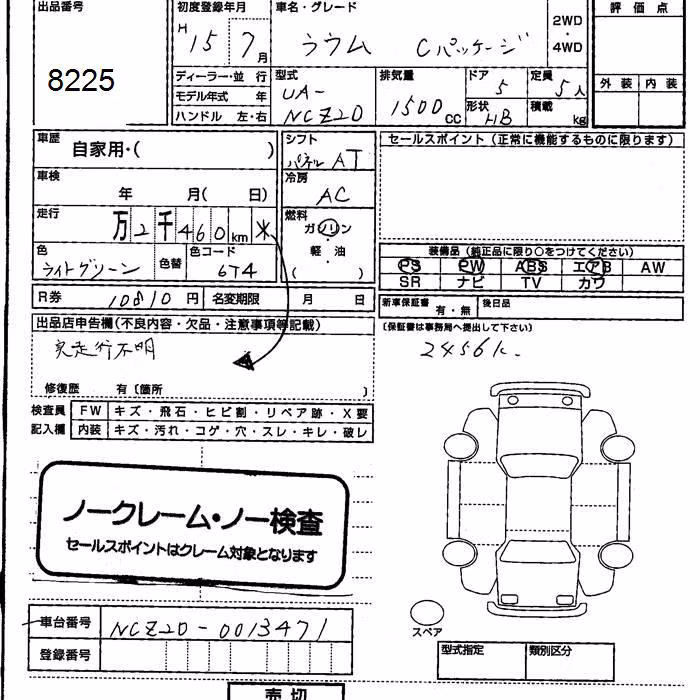 出品番号
8225
初度登録年月
H 15 7月
車名・グレード
ラウム Cパッケージ
2WD
・
4WD
評価点
外装 内装
ディーラー・並行
モデル年式 年
ハンドル 左・右
型式
UA-
NCZ20
排気量
1500 CC
ドア
5
形状
HB
定員
5人
積載
kg
車歴
自家用・( )
車検
年 月( 日)
走行
万 2千460 km ※
色
ライトグリーン
色替
色コード
6T4
シフト
パネル AT
冷房
AC
燃料
ガソリン
・
軽・油
( )
セールスポイント(正常に機能するものに限ります)
装備品(純正品に限り○をつけてください)
PS PW ABS エアB AW
SR ナビ TV カワ
R券 10810円 名変期限 月 日
新車保証書 有・無 後日品
(保証書は事務局へ提出して下さい)
出品店申告欄(不良内容・欠品・注意事項等記載)
実走行不明
2456K.
修復歴 有〔箇所 〕
検査員
記入欄
FW キズ・飛石・ヒビ割・リペア跡・X要
内装 キズ・汚れ・コゲ・穴・スレ・キレ・破レ
ノークレーム・ノー検査
セールスポイントはクレーム対象となります
車台番号 NCZ20-0013471
登録番号
スペア
型式指定 類別区分
売切